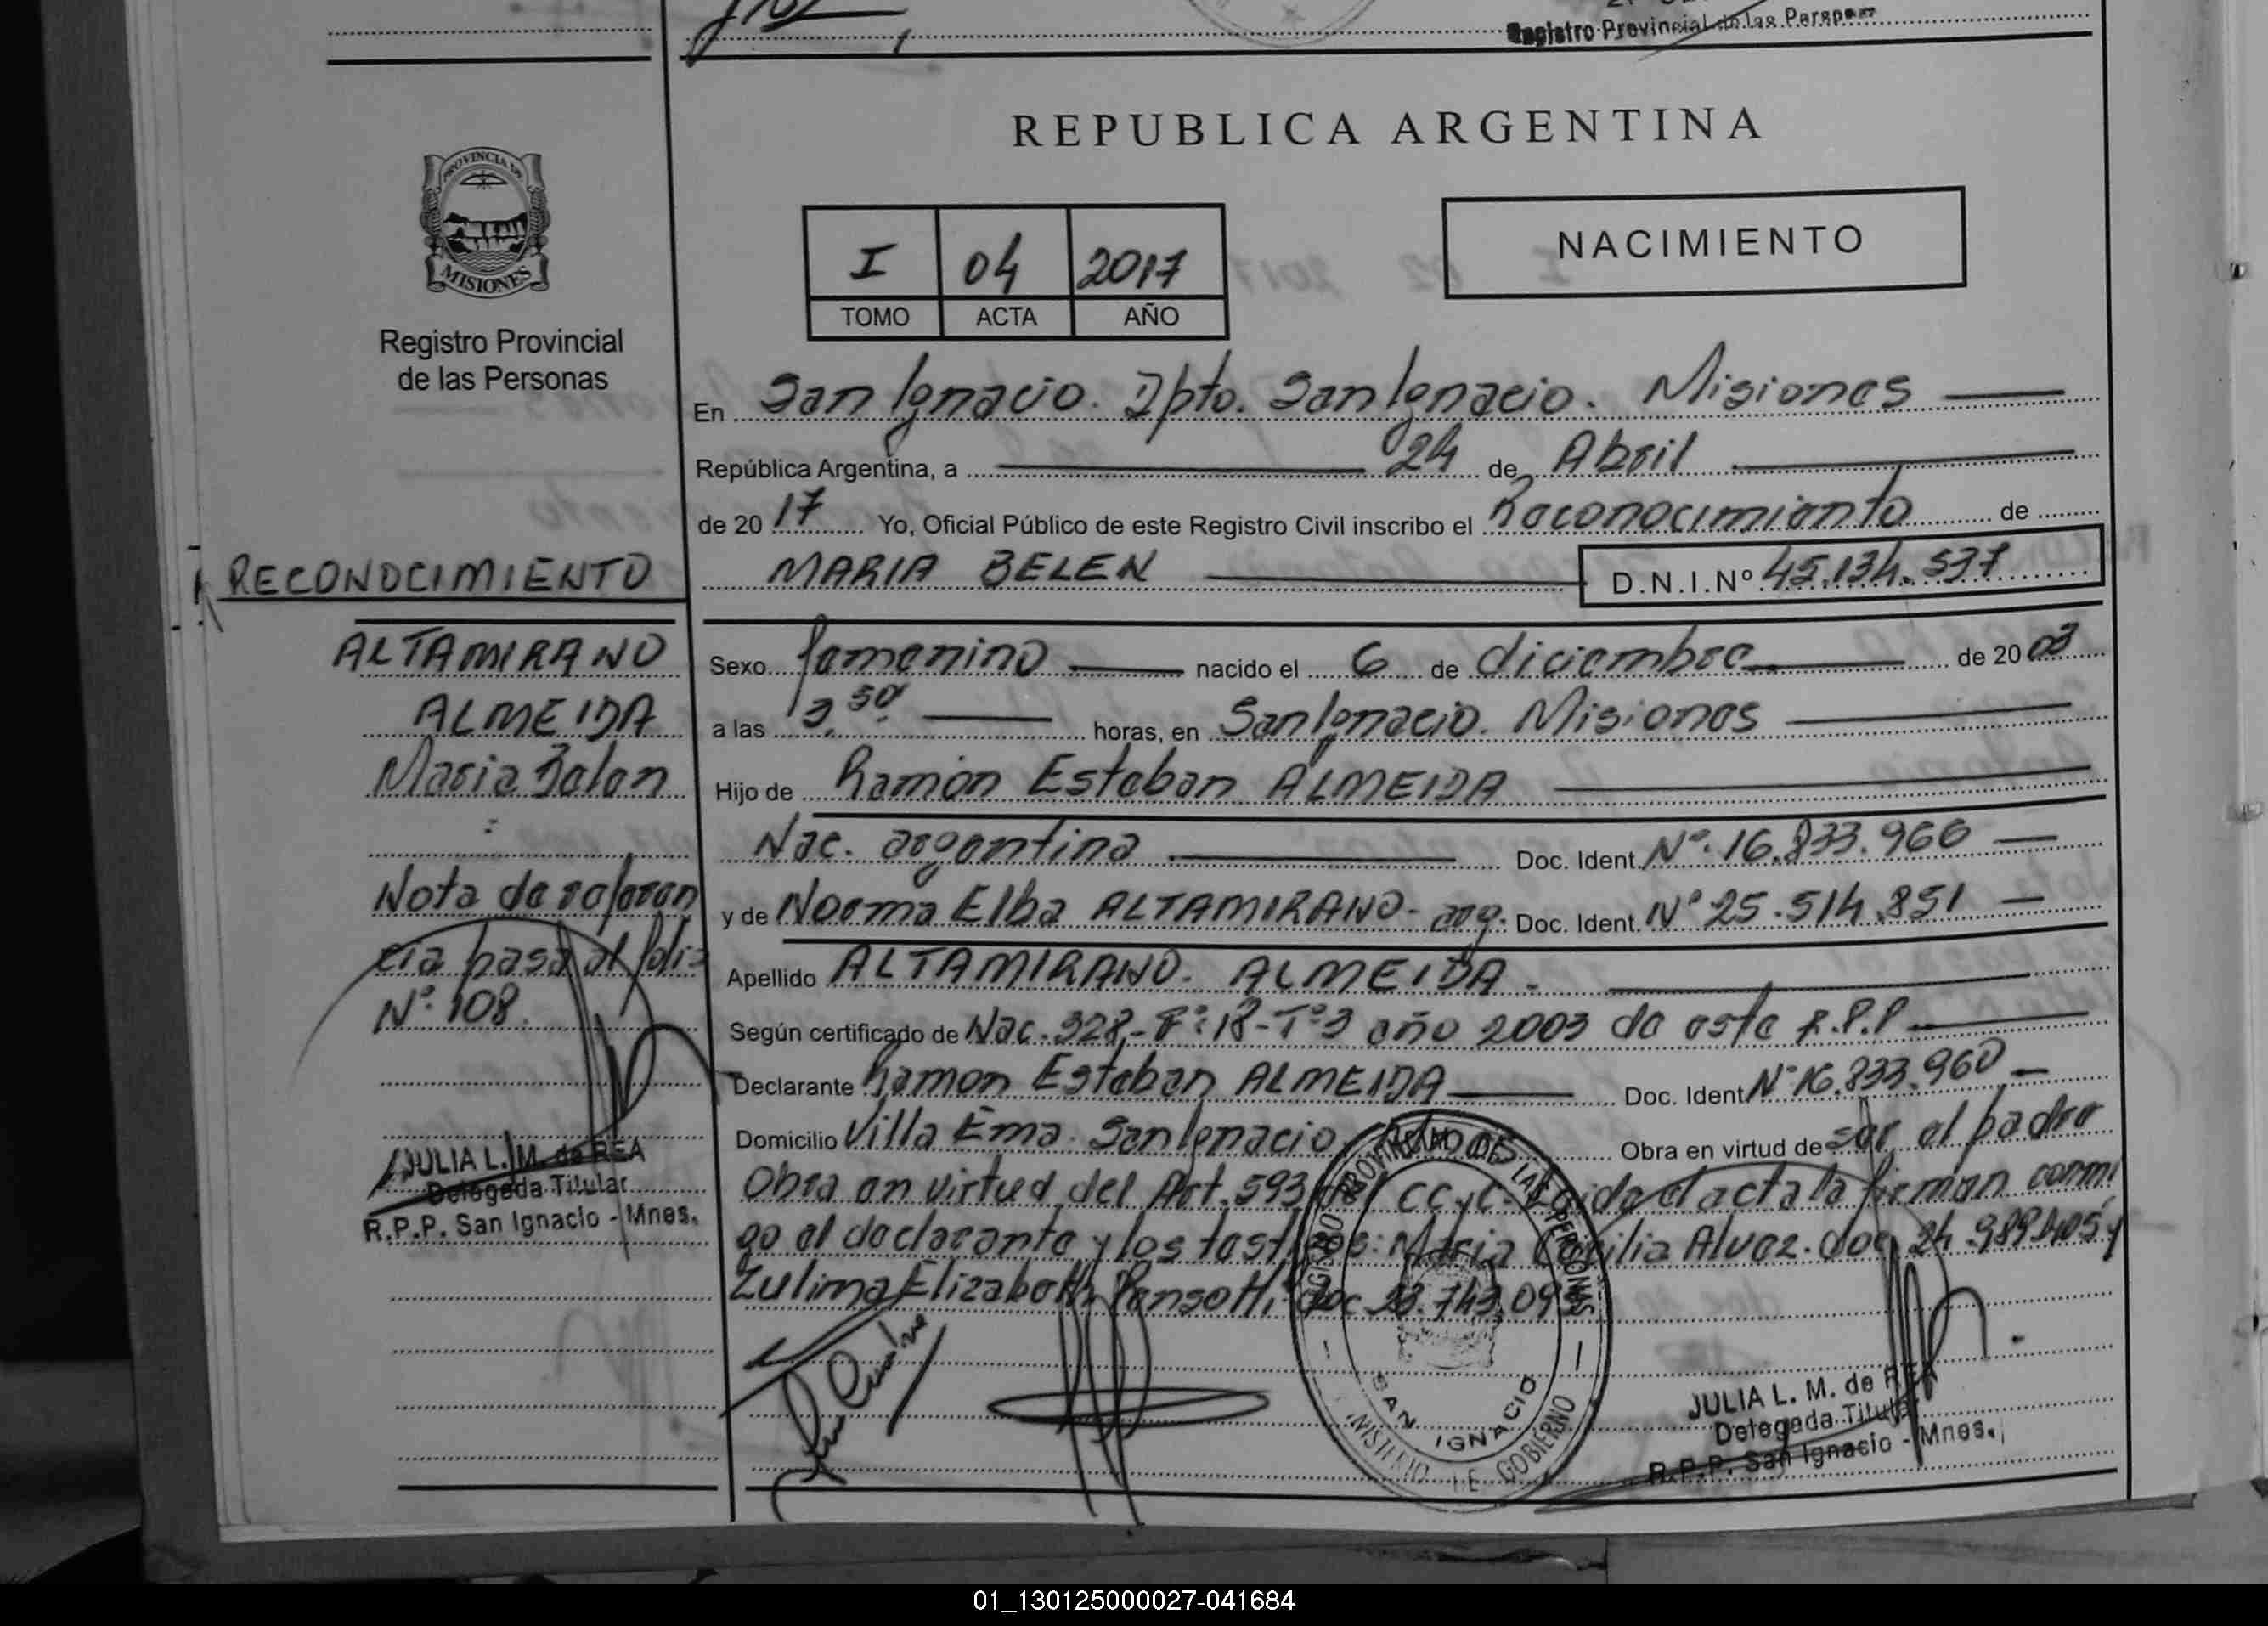 Registro Provincial de las Personas
REPUBLICA ARGENTINA
PROVINCIA DE
MISIONES
Registro Provincial
de las Personas
I 04 2017
TOMO ACTA AÑO
NACIMIENTO
En San Ignacio. Dpto. San Ignacio. Misiones
República Argentina, a 24 de Abril
de 2017 Yo, Oficial Público de este Registro Civil inscribo el Reconocimiento de
MARIA BELEN D.N.I.Nº 45.134.537
RECONOCIMIENTO
ALTAMIRANO
ALMEIDA
Maria Belen
:
Nota de referen
cia pasa al folio
Nº 108.
JULIA L. M. de REA
Delegada Titular
R.P.P. San Ignacio - Mnes.
Sexo femenino nacido el 6 de diciembre de 2003
a las 13,50 horas, en San Ignacio. Misiones
Hijo de Ramón Esteban ALMEIDA
Nac. argentina Doc. Ident. Nº 16.833.960
y de Norma Elba ALTAMIRANO - arg. Doc. Ident. Nº 25.514.851
Apellido ALTAMIRANO. ALMEIDA.
Según certificado de Nac. 328 - Fº 18 - Tº 3 año 2003 de este R.P.P.
Declarante Ramon Esteban ALMEIDA Doc. Ident Nº 16.833.960
Domicilio Villa Ema. San Ignacio Obra en virtud de ser el padre
Obra en virtud del Art. 593 del CC y C. Leida el acta la firman conmi
go el declarante y los testigos: Maria Cecilia Alvez. doc 24.989.405 y
Zulima Elizabeth Pensotti, doc 23.743.093
REGISTRO PROVINCIAL DE LAS PERSONAS
SAN IGNACIO
MINISTERIO DE GOBIERNO
JULIA L. M. de REA
Delegada Titular
R.P.P. San Ignacio - Mnes.
01_130125000027-041684